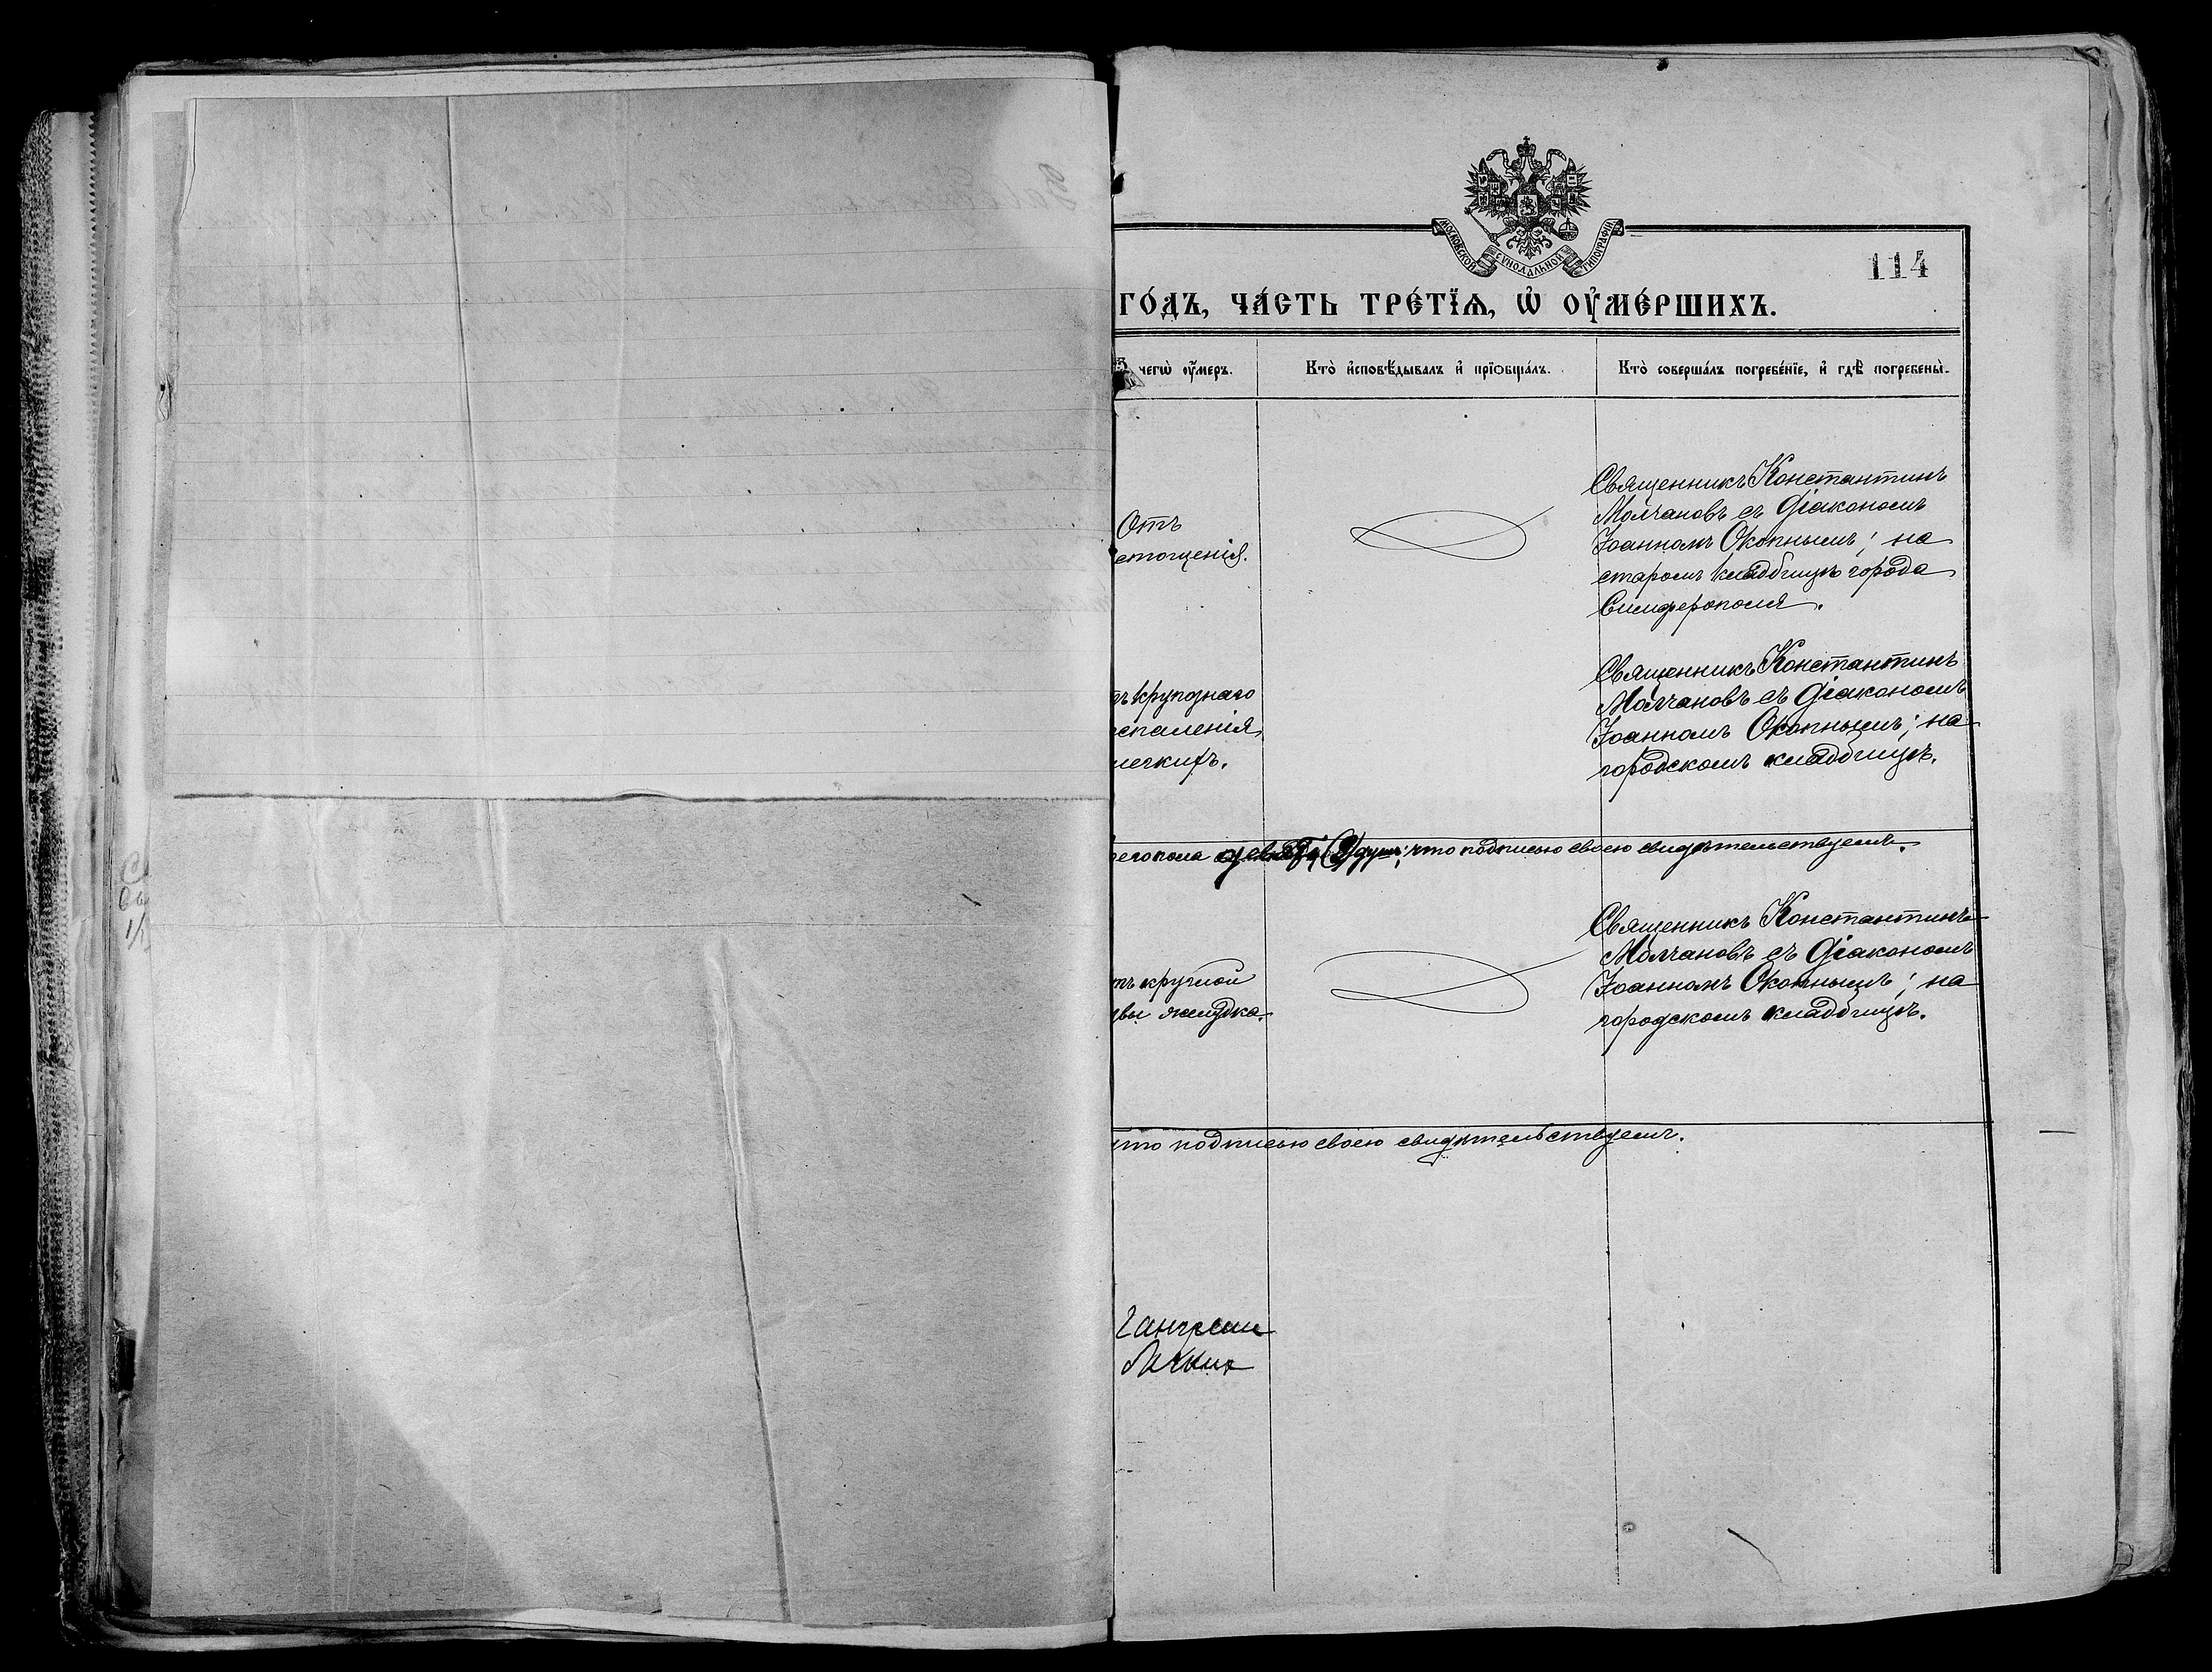 МОСКОВСКОЙ СѴНОДАЛЬНОЙ ТИПОГРАФІИ
114
ГО́ДЪ, ЧА́СТЬ ТРЕ́ТЇѦ, Ѡ҆ ОУ҆МЕ́РШИХЪ.
чегѡ̀ оу҆́меръ.
Кто̀ и҆сповѣ́дывалъ и҆ прїѡбща́лъ.
Кто̀ соверша́лъ погребе́нїе, и҆ гдѣ̀ погребены̀.
Отъ
стощенія.
Священникъ Константинъ
Молчановъ съ діакономъ
Іоанномъ Окопнымъ; на
старомъ кладбищѣ города
Симферополя.
тъ крупознаго
спаленія
легкихъ.
Священникъ Константинъ
Молчановъ съ діакономъ
Іоанномъ Окопнымъ; на
городскомъ кладбищѣ.
его пола душъ; что подписью своею свидѣтельствуемъ.
тъ кручной
вы желудка.
Священникъ Константинъ
Молчановъ съ діакономъ
Іоанномъ Окопнымъ; на
городскомъ кладбищѣ.
что подписью своею свидѣтельствуемъ.